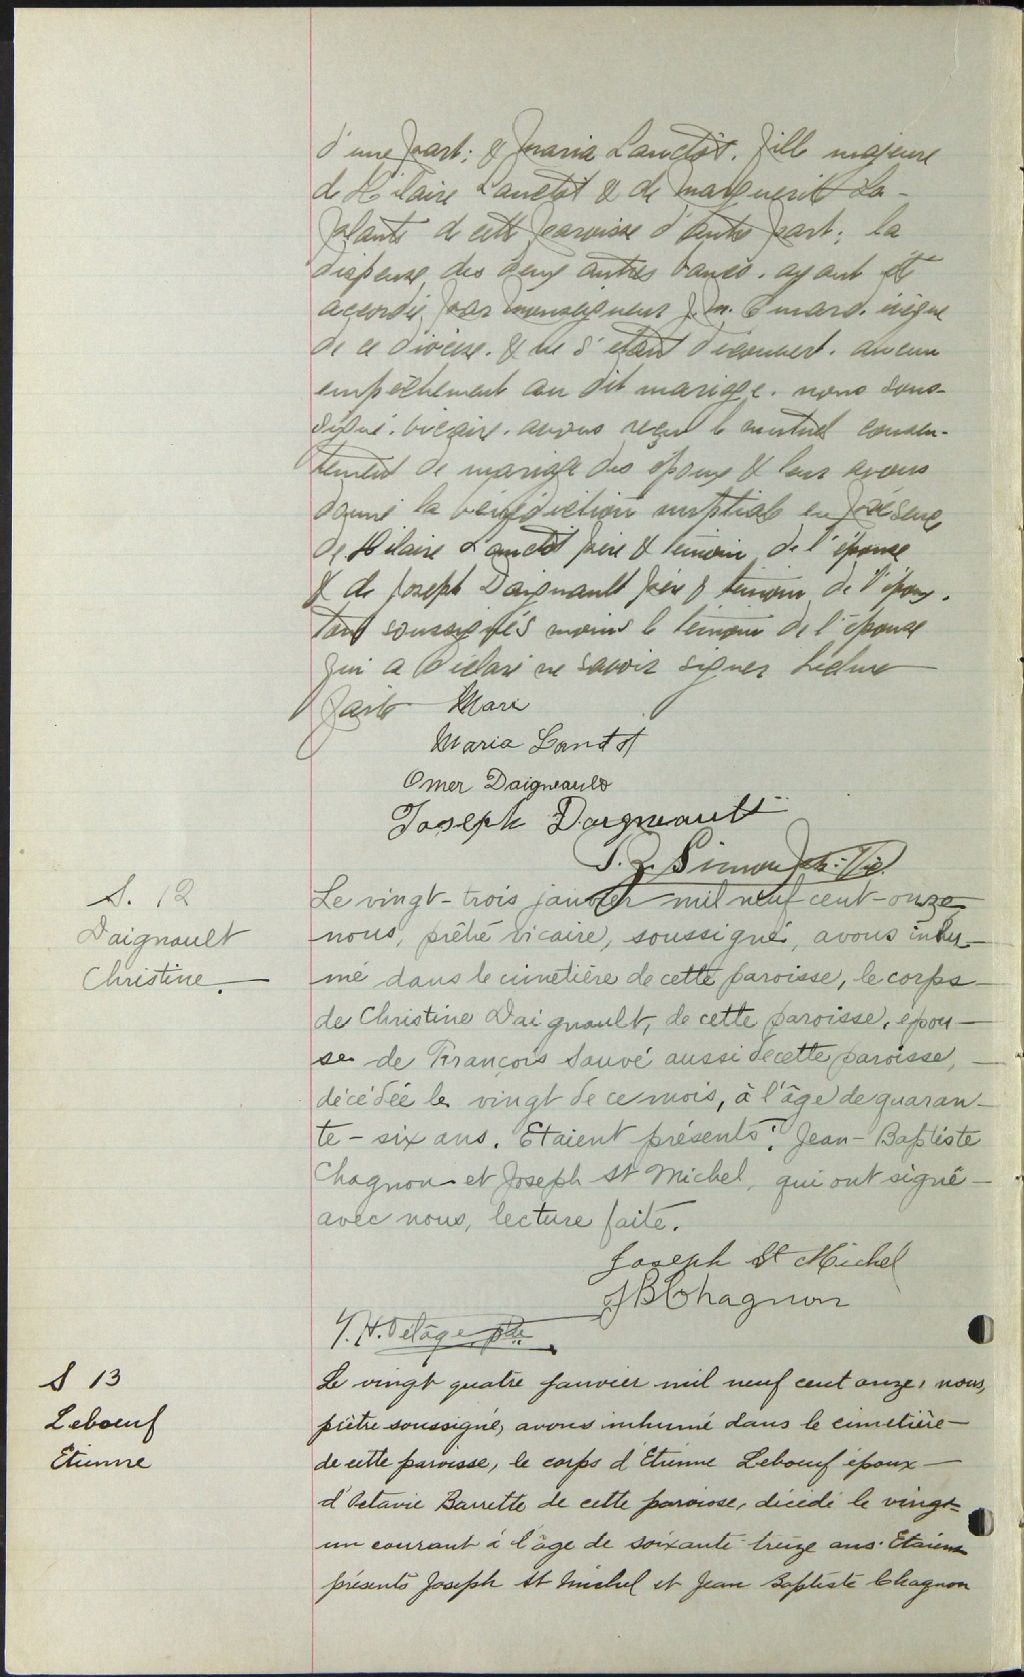 d'une part; & Maria Lanctôt, fille majeure
de Hilaire Lanctôt & de Marguerite La-
plante de cette paroisse d'autre part; la
dispense des deux autres bancs ayant été
accordée par Monseigneur J. M. Emard, évêque
de ce diocèse, & ne s'étant découvert aucun
empêchement au dit mariage, nous sous-
signé, vicaire, avons reçu le mutuel consen-
tement de mariage des époux & leur avons
donné la bénédiction nuptiale en présence
de Hilaire Lanctôt père & témoin de l'épouse
& de Joseph Daignault père & témoin de l'époux,
tous soussignés moins le témoin de l'épouse
qui a déclaré ne savoir signer. Lecture
faite Mari
Maria Lanctôt
Omer Daigneault
Joseph Daigneault
J. Z. Simon Ptr. Vic.
S. 12
Daignault
Christine
Le vingt-trois janvier mil neuf cent-onze,
nous, prêtre vicaire, soussigné, avons inhu-
mé dans le cimetière de cette paroisse, le corps
de Christine Daignault, de cette paroisse, épou-
se de François Sauvé aussi de cette paroisse,
décédée le vingt de ce mois, à l'âge de quaran-
te-six ans. Etaient présents: Jean-Baptiste
Chagnon et Joseph St Michel, qui ont signé
avec nous, lecture faite.
Joseph St Michel
JB Chagnon
J. H. Delâge ptre
S 13
Leboeuf
Etienne
Le vingt quatre janvier mil neuf cent onze, nous,
prêtre soussigné, avons inhumé dans le cimetière
de cette paroisse, le corps d'Etienne Leboeuf époux
d'Octavie Barrette de cette paroisse, décédé le vingt-
un courant à l'âge de soixante treize ans. Etaient
présents Joseph St Michel et Jean Baptiste Chagnon